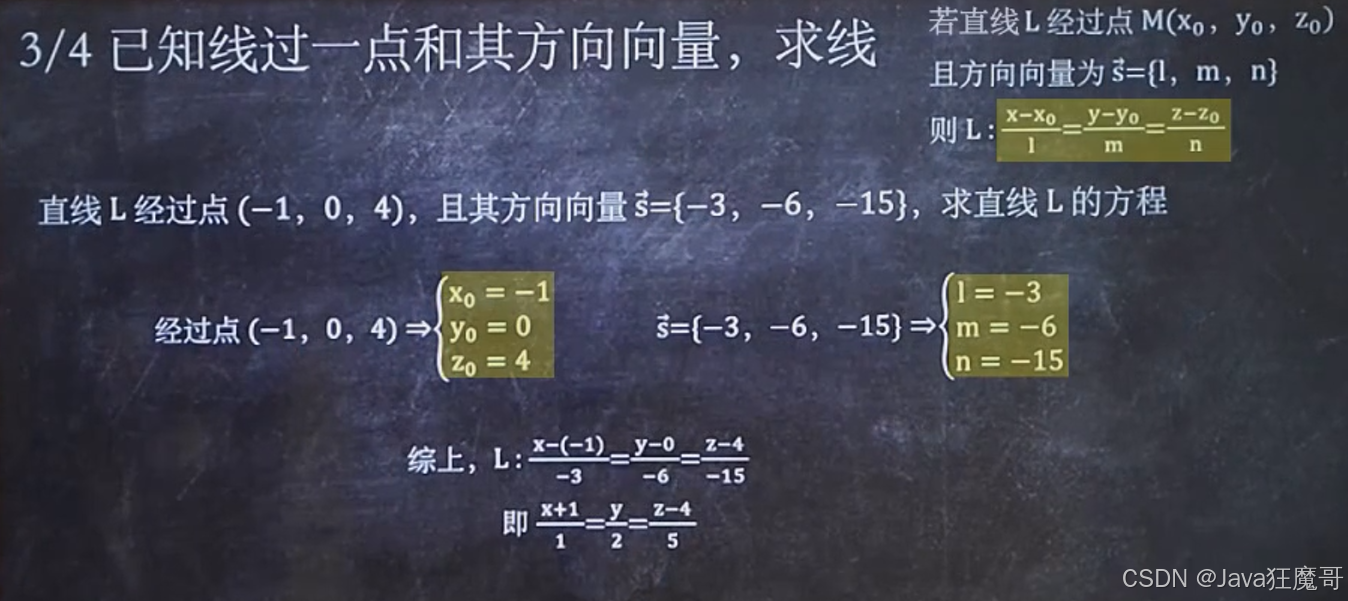 3/4 已知线过一点和其方向向量，求线
若直线 L 经过点 M(x₀，y₀，z₀)
且方向向量为 s⃗={l，m，n}
则 L：(x−x₀)/l=(y−y₀)/m=(z−z₀)/n
直线 L 经过点 (−1，0，4)，且其方向向量 s⃗={−3，−6，−15}，求直线 L 的方程
经过点 (−1，0，4) ⇒ { x₀ = −1
y₀ = 0
z₀ = 4
s⃗={−3，−6，−15} ⇒ { l = −3
m = −6
n = −15
综上，L：(x−(−1))/−3=(y−0)/−6=(z−4)/−15
即 (x+1)/1=y/2=(z−4)/5
CSDN @Java狂魔哥